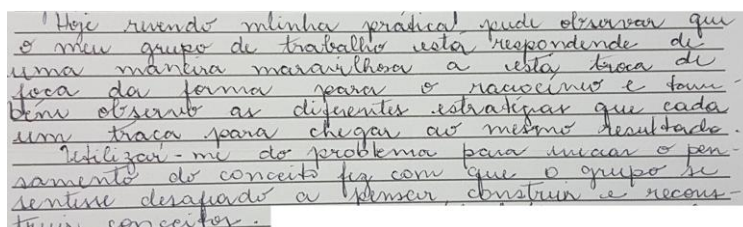 "Hoje revendo minha prática, pude observar que
o meu grupo de trabalho está respondende de
uma maneira maravilhosa a esta troca de
foca da forma para o raciocínio e tam-
bém observo as diferentes estratégias que cada
um traça para chegar ao mesmo resultado.
Utilizar-me do problema para iniciar o pen-
samento do conceito fez com que o grupo se
sentisse desafiado a pensar, construir e recons-
truir conceitos.